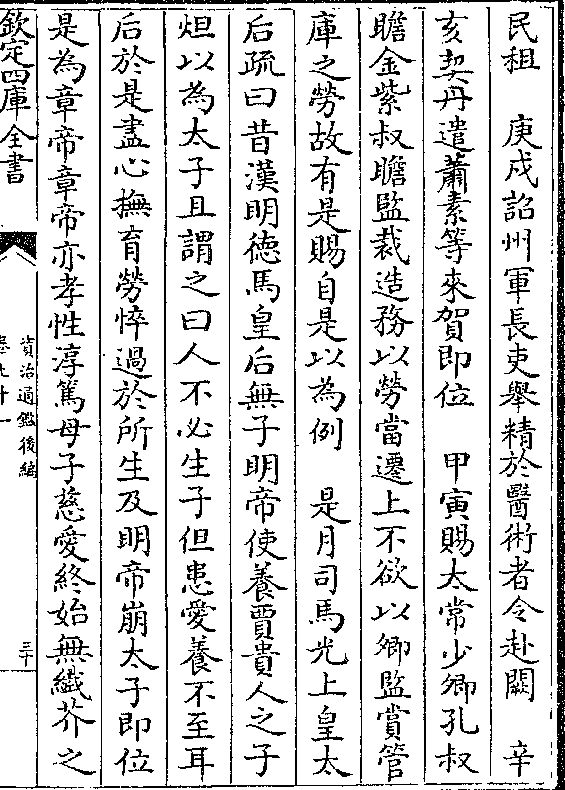 民租　庚戍詔州軍長吏舉精於醫術者令赴闕　辛
亥契丹遣蕭素等來賀即位　甲寅賜太常少卿孔叔
瞻金紫叔瞻監裁造務以勞當遷上不欲以卿監賞管
庫之勞故有是賜自是以為例　是月司馬光上皇太
后疏曰昔漢明徳馬皇后無子明帝使養賈貴人之子
炟以為太子且謂之曰人不必生子但患愛養不至耳
后於是盡心撫育勞悴過於所生及明帝崩太子即位
是為章帝章帝亦孝性淳篤母子慈愛終始無纎芥之
欽定四庫全書
資治通鑑後編
三十